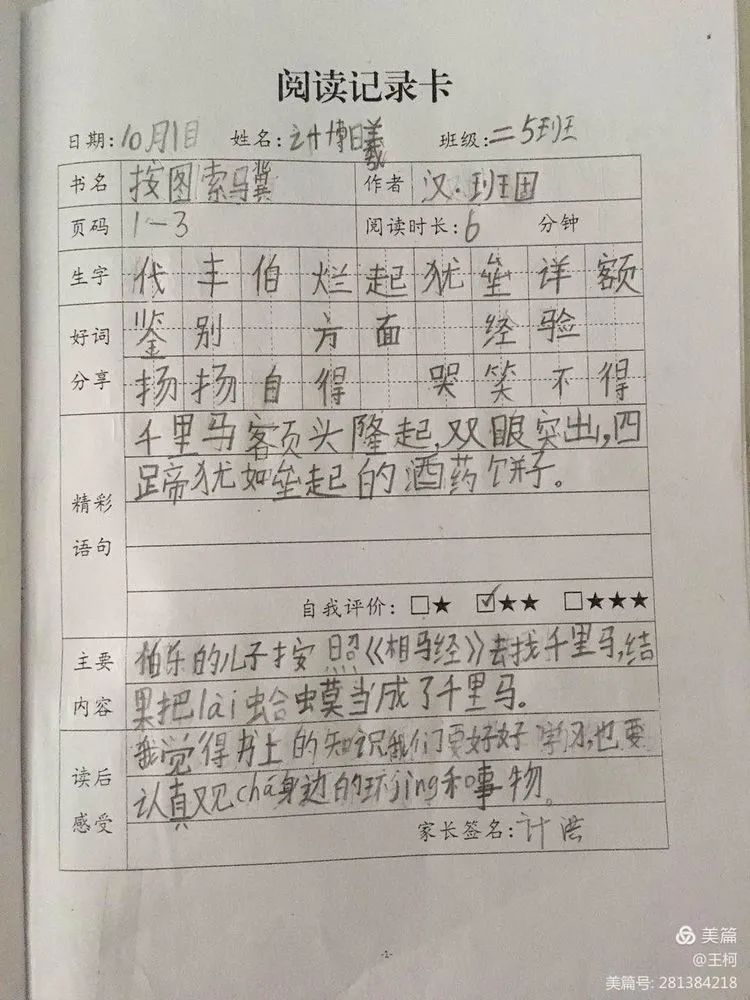 阅读记录卡
日期:10月1日 姓名:计博曦 班级:二5班
书名 按图索骥 作者 汉·班固
页码 1-3 阅读时长:6 分钟
生字 代 丰 伯 烂 起 犹 垒 详 额
好词 鉴别 方面 经验
分享 扬扬自得 哭笑不得
千里马额头隆起,双眼突出,四
蹄犹如垒起的酒药饼子。
精彩
语句
自我评价: □★ ☑★★ □★★★
主要 伯乐的儿子按照《相马经》去找千里马,结
内容 果把lài蛤蟆当成了千里马。
我觉得书上的知识我们要好好学习,也要
读后 认真观chá身边的环jing和事物。
感受
家长签名:计洪
-1-
美篇
@王柯
美篇号: 281384218